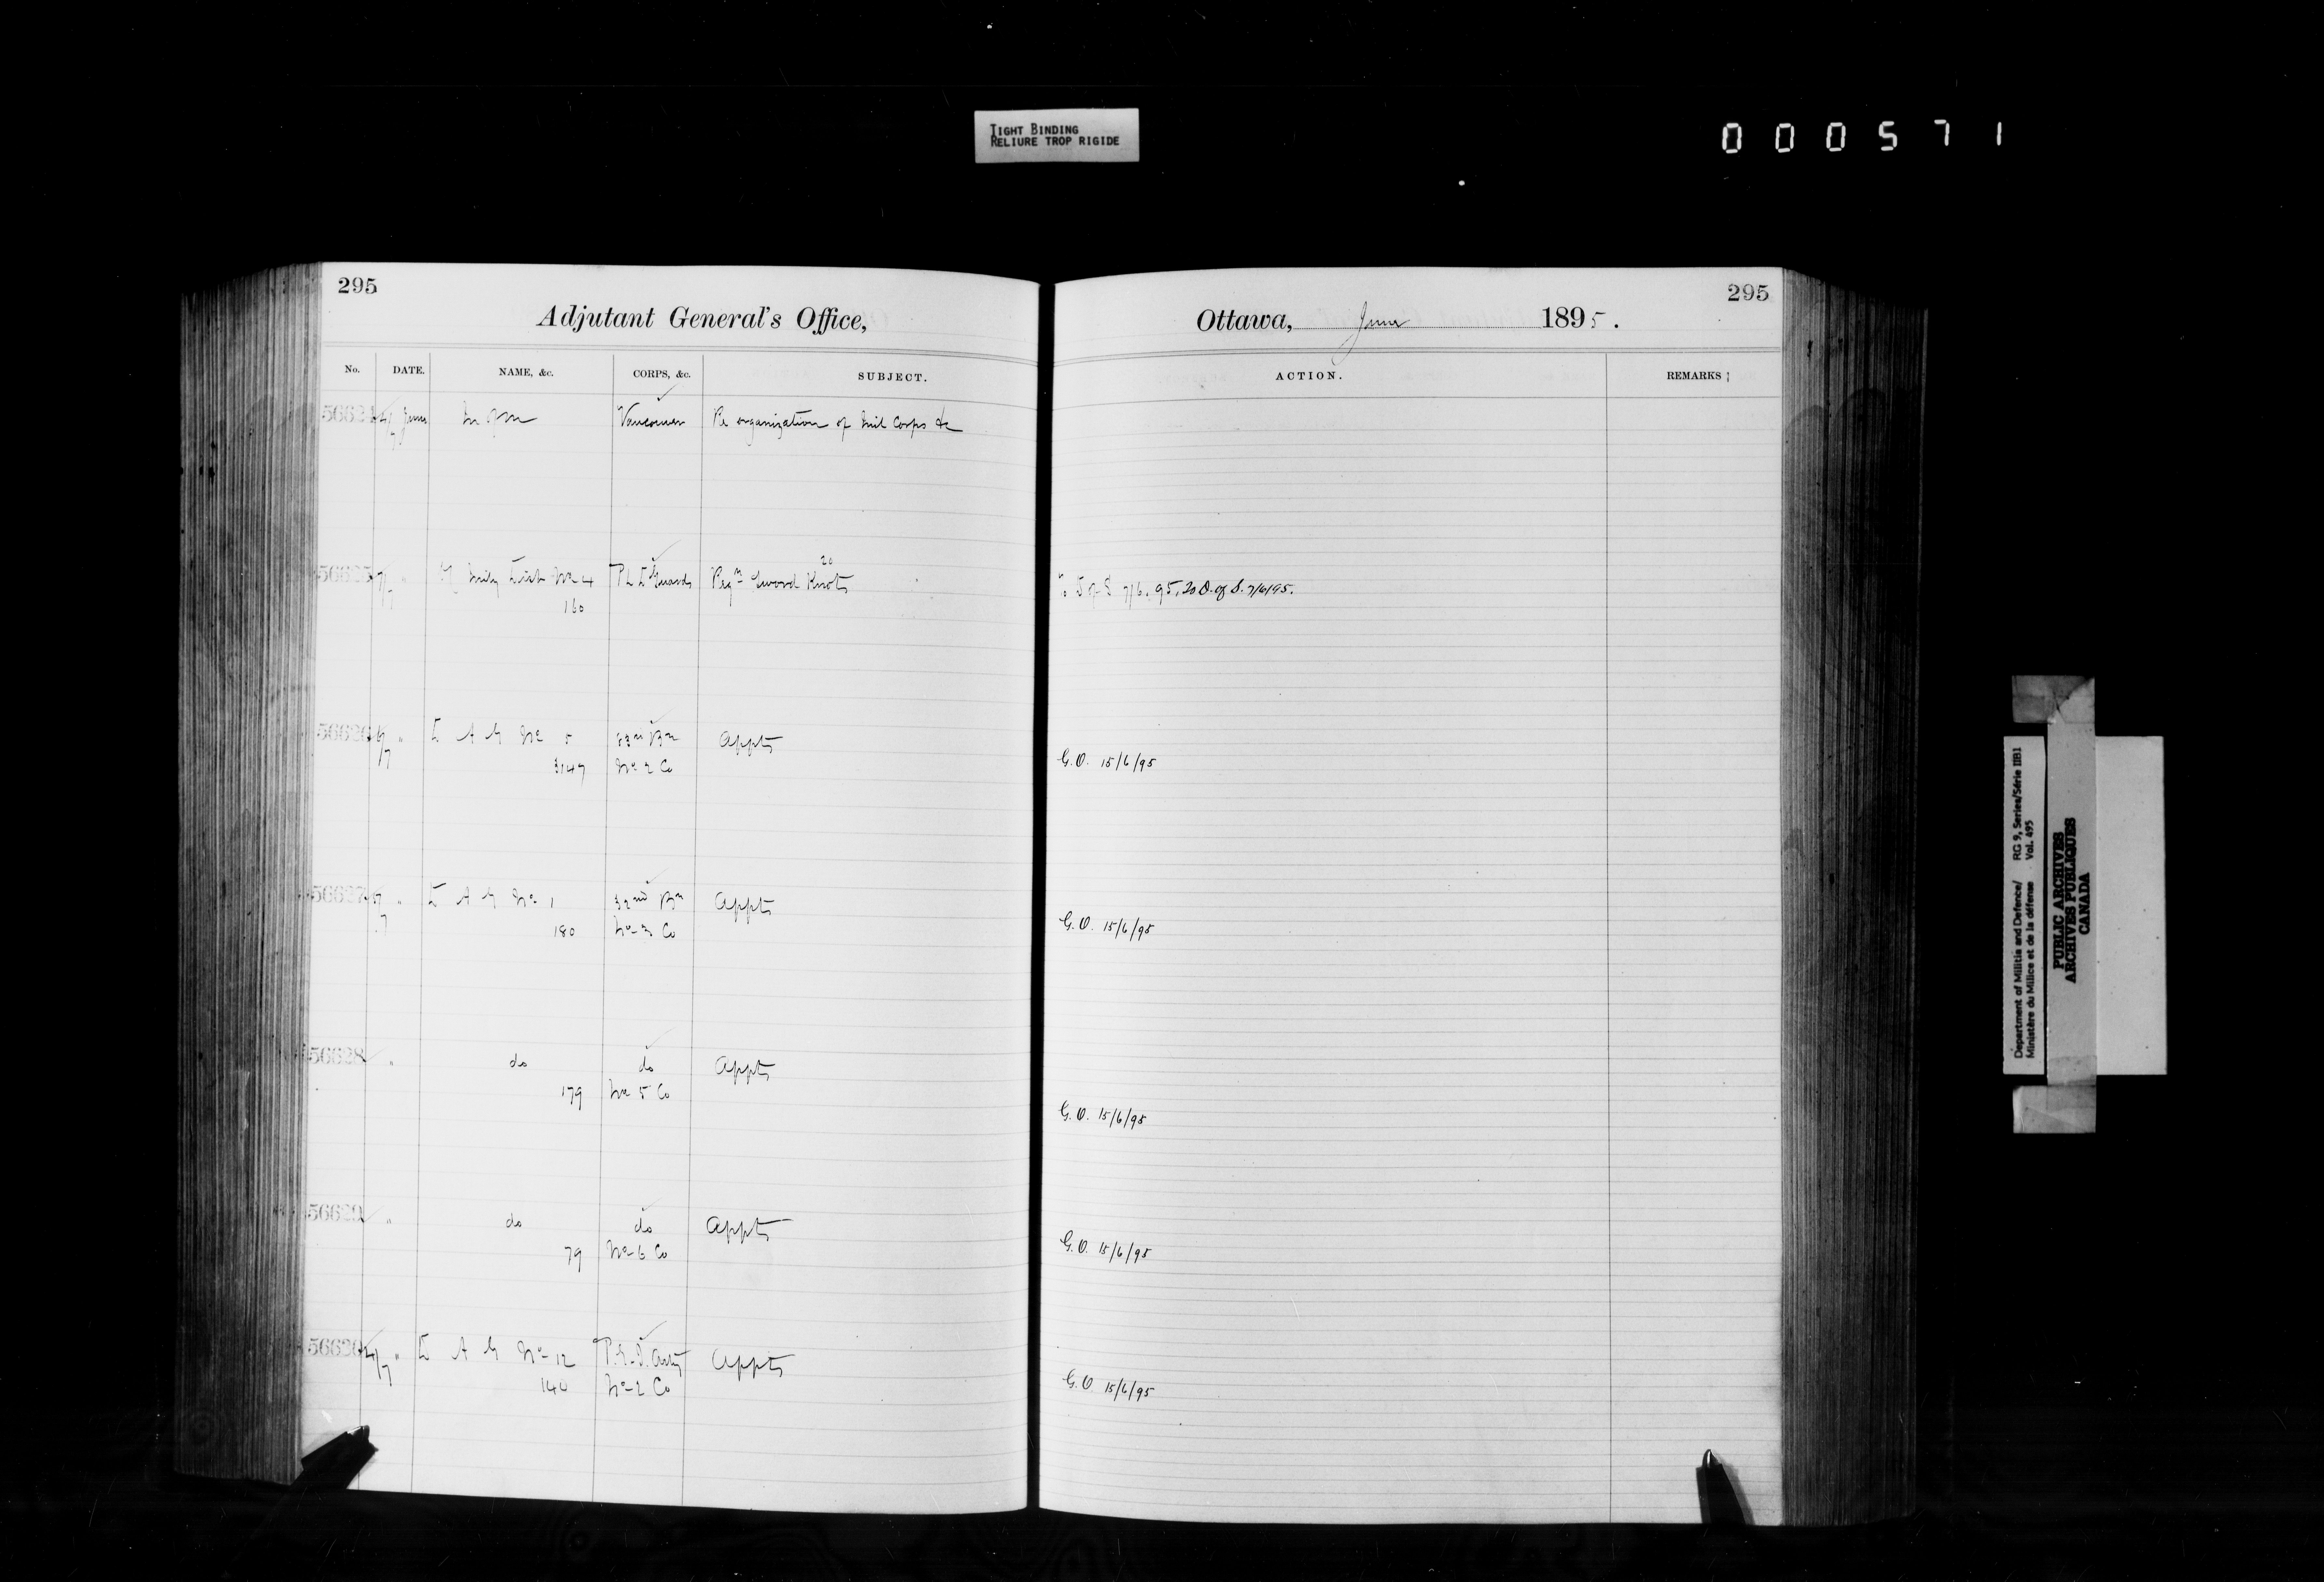 TIGHT BINDING
RELIURE TROP RIGIDE
000571
295
Adjutant General's Office,
No. DATE. NAME, &c. CORPS, &c. SUBJECT.
June Vancouver Re organization of Mil Corps &c
56625 " No 4 P L D Guards Reqn Sword Knots 20
160
" D A G No 5 Bn Appts
3147 No 2 Co
56627 " D A G No 1 32nd Bn Appts
180 No 3 Co
56628 " do do Appts
179 No 5 Co
56629 " do do Appts
79 No 6 Co
56630 " D A G No 12 Appts
140 No 2 Co
295
Ottawa, June 1895.
ACTION. REMARKS
D of S 7/6/95, 20 D. of S. 7/6/95.
G.O. 15/6/95
G.O. 15/6/95
G.O. 15/6/95
G.O. 15/6/95
G.O 15/6/95
Department of Militia and Defence/ RG 9, Series/Série IIB1
Ministère du Milice et de la défense Vol. 495
PUBLIC ARCHIVES
ARCHIVES PUBLIQUES
CANADA